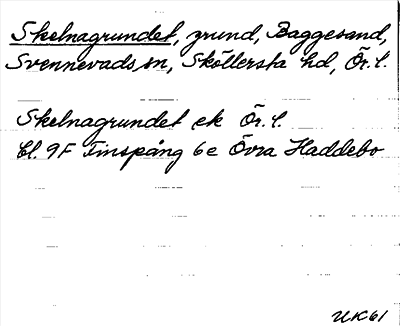 Skelnagrundet, grund, Baggesand,
Svennevads sn, Sköllersta hd, Ör. l.
Skelnagrundet ek Ör. l.
Bl. 9F Finspång 6e Övra Haddebo
UK61